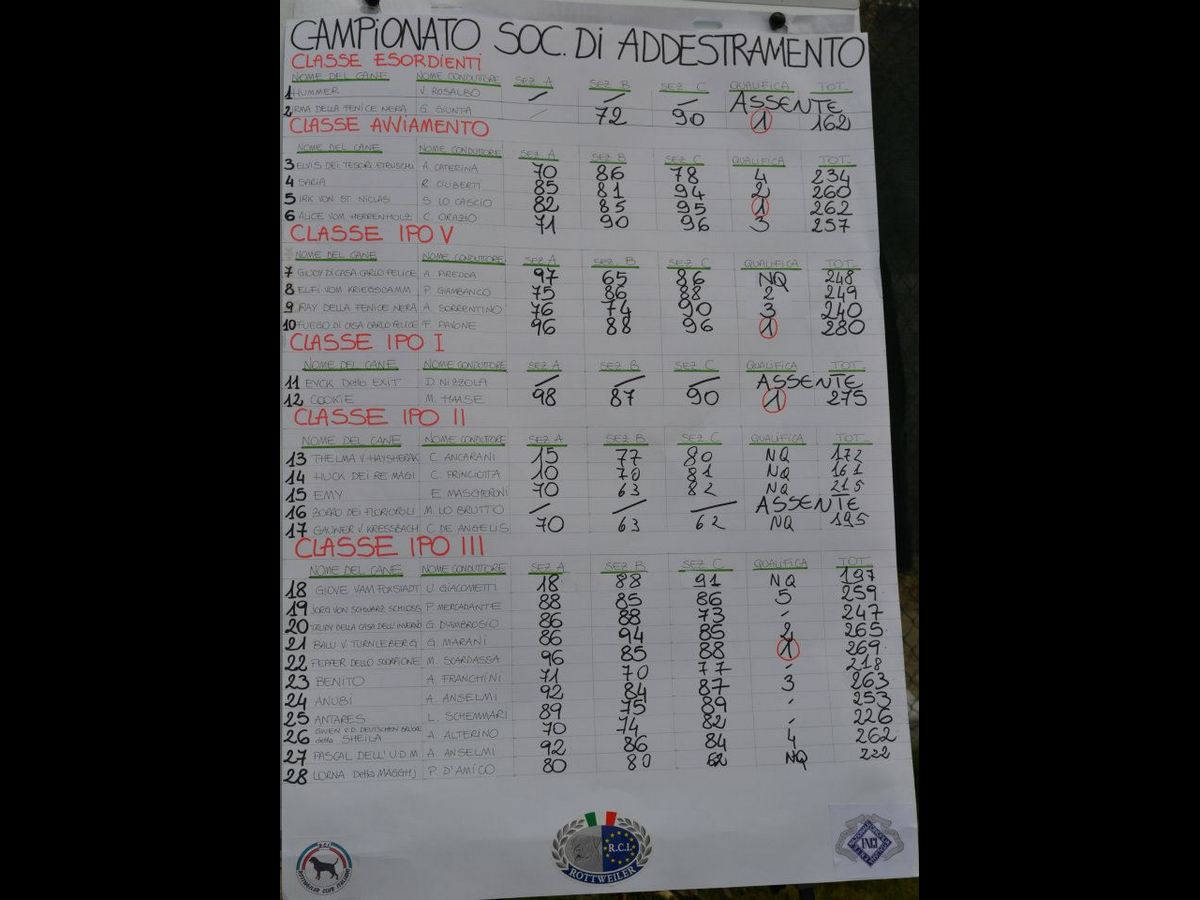 CAMPIONATO SOC. Di ADDESTRAMENTO
CLASSE ESORDIENTI
NOME DEL CANE NOME CONDUTTORE SEZ A SEZ B SEZ C QUALIFICA TOT.
1 HUMMER V. ROSALBO / / / ASSENTE
2 IRMA DELLA FENICE NERA G. GIUNTA / 72 90 1 162
CLASSE AVVIAMENTO
NOME DEL CANE NOME CONDUTTORE SEZ A SEZ B SEZ C QUALIFICA TOT.
3 ELVIS DEI TESORI ETRUSCHI A. CATERINA 70 86 78 4 234
4 SARIA R. CILIBERTI 85 81 94 2 260
5 IRK VON ST. NICLAS S. LO CASCIO 82 85 95 1 262
6 ALICE VOM HERRENHOLZ C. ORAZIO 71 90 96 3 257
CLASSE IPO V
NOME DEL CANE NOME CONDUTTORE SEZ A SEZ. B SEZ C QUALIFICA TOT.
7 GIUDY DI CASA CARLO FELICE A. PIREDDA 97 65 86 NQ 248
8 ELFI VOM KRIEGSDAMM P. GIAMBANCO 75 86 88 2 249
9 RAY DELLA FENICE NERA A. SORRENTINO 76 74 90 3 240
10 FUEGO DI CASA CARLO FELICE F. PAVONE 96 88 96 1 280
CLASSE IPO I
NOME DEL CANE NOME CONDUTTORE SEZ A SEZ B SEZ C QUALIFICA TOT.
11 EYCK Dello EXIT D. NIZZOLA / / / ASSENTE
12 COOKIE M. HAASE 98 87 90 1 275
CLASSE IPO II
NOME DEL CANE NOME CONDUTTORE SEZ A SEZ B SEZ C QUALIFICA TOT.
13 THELMA V. HAYSHERAK C. ANCARANI 15 77 80 NQ 172
14 HUCK DEI RE MAGI C. PRINCIOTTA 10 70 81 NQ 161
15 EMY E. MASCHERONI 70 63 82 NQ 215
16 ZORRO DEI FLORIOROLI M. LO BRUTTO / / / ASSENTE
17 GAUNER V. KRESSBACH C. DE ANGELIS 70 63 62 NQ 195
CLASSE IPO III
NOME DEL CANE NOME CONDUTTORE SEZ A SEZ B SEZ C QUALIFICA TOT.
18 GIOVE VAM FOXSTADT U. GIACOMETTI 18 88 91 NQ 197
19 JORG VON SCHWARZ SCHLOSS P. MERCADANTE 88 85 86 5 259
20 TRUDY DELLA CASA DELL'INFERNO G. D'AMBROSIO 86 88 73 - 247
21 BALU V. TURNLEBERG G. MARANI 86 94 85 2 265
22 PEPPER DELLO SCORPIONE M. SCARDASSA 96 85 88 1 269
23 BENITO A. FRANCHINI 71 70 77 - 218
24 ANUBI A. ANSELMI 92 84 87 3 263
25 ANTARES L. SCHEMMARI 89 75 89 - 253
26 GWEN V.D. DEUTSCHEN detta SHEILA A. ALTERINO 70 74 82 - 226
27 PASCAL DELL'U.D.M. A. ANSELMI 92 86 84 4 262
28 LORNA Della MAGGHJ P. D'AMICO 80 80 62 NQ 222
R.C.I.
ROTTWEILER CLUB ITALIANO
R.C.I.
ROTTWEILER
ENCI